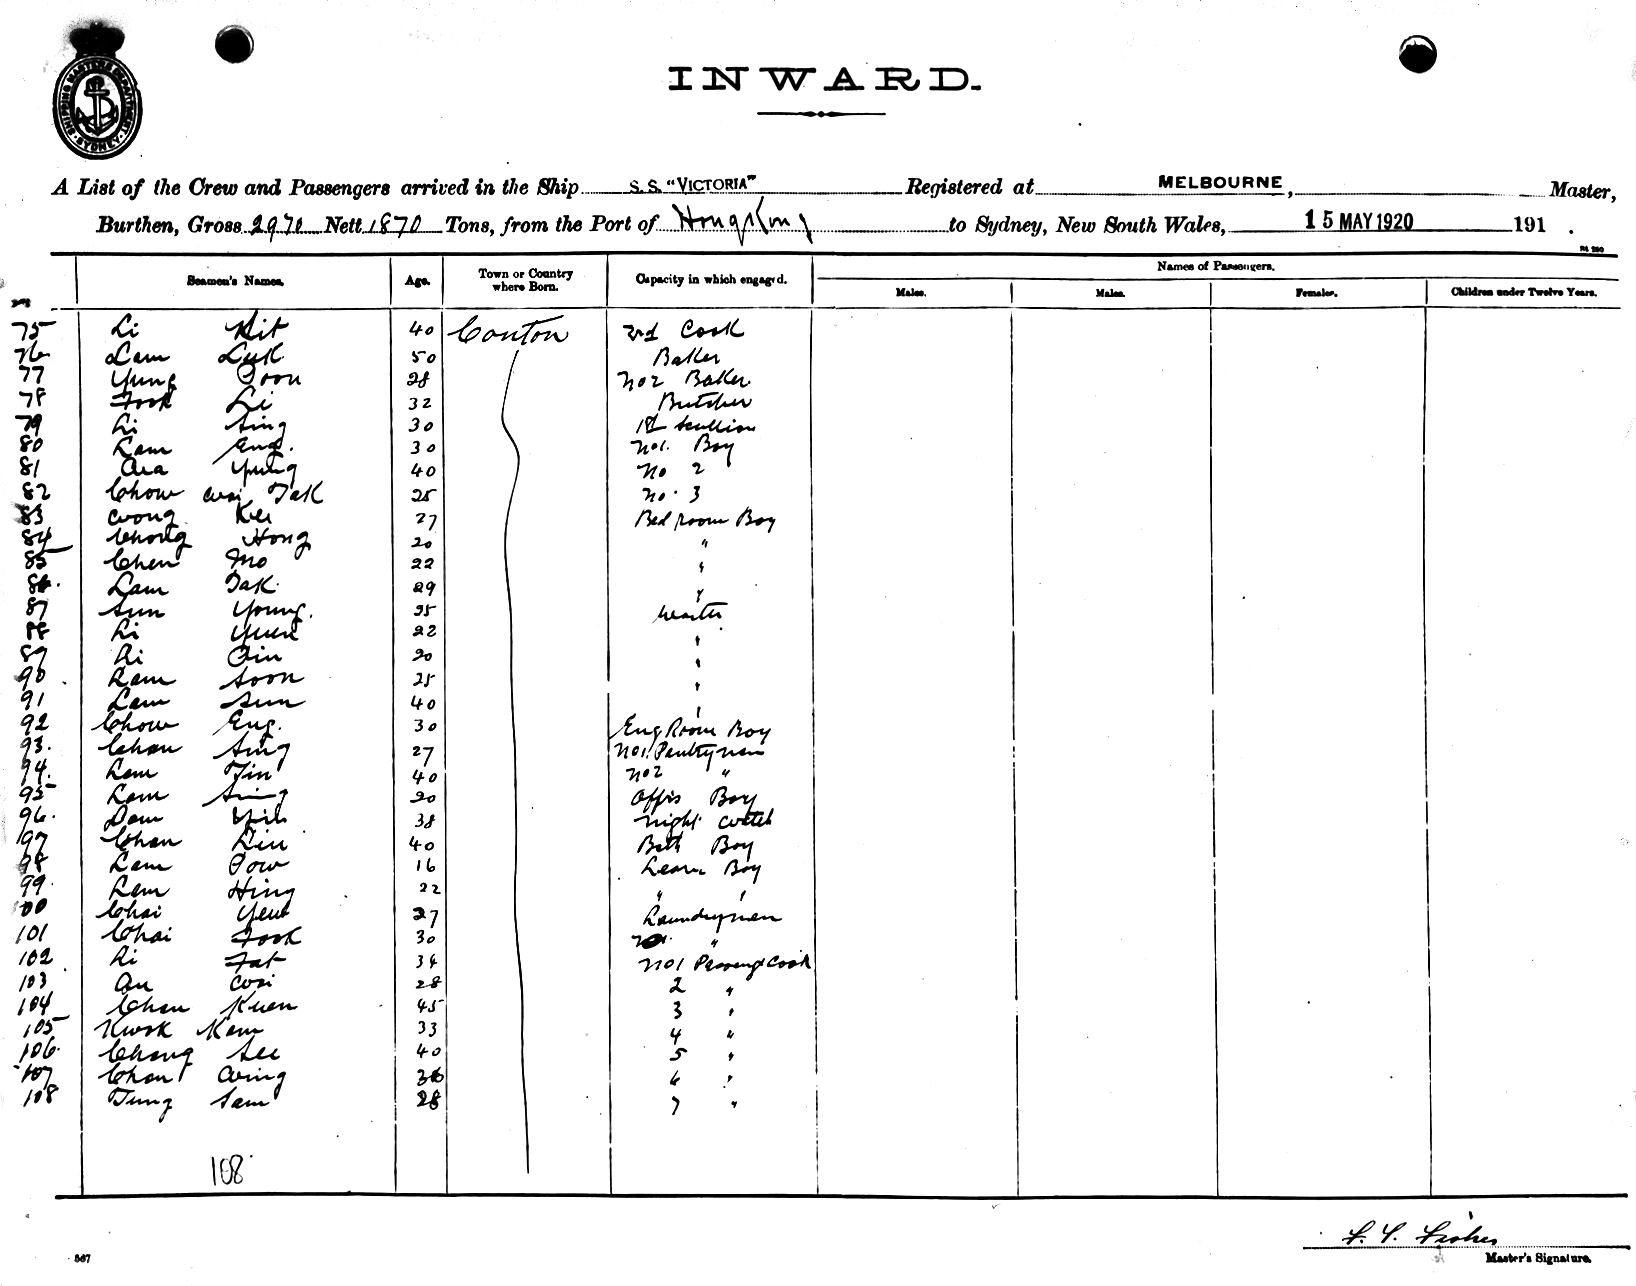 SHIPPING MASTERS DEPARTMENT. SYDNEY
INWARD.
A List of the Crew and Passengers arrived in the Ship S.S. "VICTORIA" Registered at MELBOURNE, Master,
Burthen, Gross 2970 Nett 1870 Tons, from the Port of Hong Kong to Sydney, New South Wales, 15 MAY 1920 191 .
Seamen's Names. Age. Town or Country where Born. Capacity in which engaged. Names of Passengers.
Males. Males. Females. Children under Twelve Years.
75 Li Kit 40 Canton 2nd Cook
76 Lam Luk 50 Baker
77 Yung Poon 28 No 2 Baker
78 Fook Li 32 Butcher
79 Li Sing 30 1st Scullion
80 Lam Eng. 30 No1. Boy
81 Yung 40 No 2
82 Chow Wai Tak 25 No. 3
83 Wong Kei 27 Bed room Boy
84 Chong Hong 20 "
85 Chen Mo 22 "
86. Lam Tak. 29 "
87 Sun Young. 25 Waiter
88 Li Yuen 22 "
89 Li 20 "
90. Lam Soon 25 "
91 Lam Sun 40 "
92 Chow Eng. 30 Eng Room Boy
93. Chan Sing 27 No1. Pantryman
94. Lam Tin 40 No2 "
95 Lam Sing 20 Offis Boy
96. Dam 38 Night Watch
97 Chan Lin 40 Bath Boy
98 Lam Pow 16 Learn Boy
99. Lam Hing 22 " "
100 Chai Yew 27 Laundryman
101 Chai Fook 30 "
102 Li Fat 34 No1 Passeng Cook
103 Au Wai 28 2 "
104 Chan Kuen 45 3 "
105 Kwok Kam 33 4 "
106. Chong See 40 5 "
107 Chan Wing 36 6 "
108 Tung Sam 28 7 "
108
Master's Signature.
567